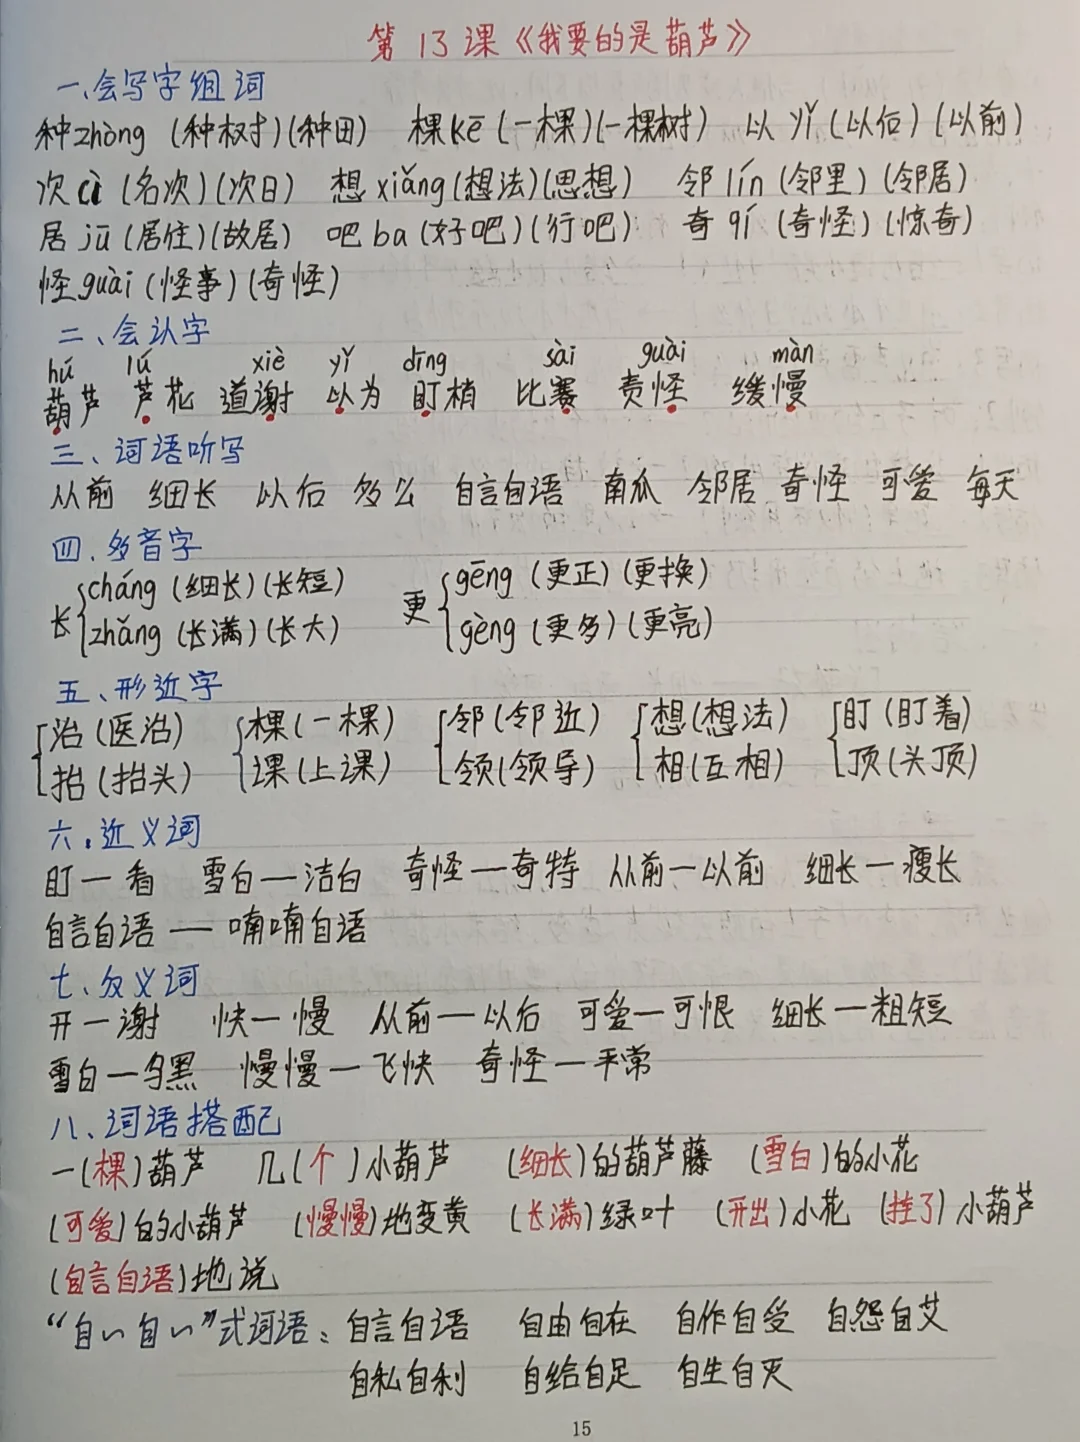 第13课《我要的是葫芦》
一、会写字组词
种zhòng（种树）（种田） 棵kē（一棵）（一棵树） 以yǐ（以后）（以前）
次cì（名次）（次日） 想xiǎng（想法）（思想） 邻lín（邻里）（邻居）
居jū（居住）（故居） 吧ba（好吧）（行吧） 奇qí（奇怪）（惊奇）
怪guài（怪事）（奇怪）
二、会认字
hú lú xiè yǐ dīng sài guài màn
葫芦 芦花 道谢 以为 盯梢 比赛 责怪 缓慢
三、词语听写
从前 细长 以后 多么 自言自语 南瓜 邻居 奇怪 可爱 每天
四、多音字
cháng（细长）（长短） gēng（更正）（更换）
长 更
zhǎng（长满）（长大） gèng（更多）（更亮）
五、形近字
治（医治） 棵（一棵） 邻（邻近） 想（想法） 盯（盯着）
抬（抬头） 课（上课） 领（领导） 相（互相） 顶（头顶）
六、近义词
盯—看 雪白—洁白 奇怪—奇特 从前—以前 细长—瘦长
自言自语—喃喃自语
七、反义词
开—谢 快—慢 从前—以后 可爱—可恨 细长—粗短
雪白—乌黑 慢慢—飞快 奇怪—平常
八、词语搭配
一（棵）葫芦 几（个）小葫芦 （细长）的葫芦藤 （雪白）的小花
（可爱）的小葫芦 （慢慢）地变黄 （长满）绿叶 （开出）小花 （挂了）小葫芦
（自言自语）地说
“自~自~”式词语：自言自语 自由自在 自作自受 自怨自艾
自私自利 自给自足 自生自灭
15